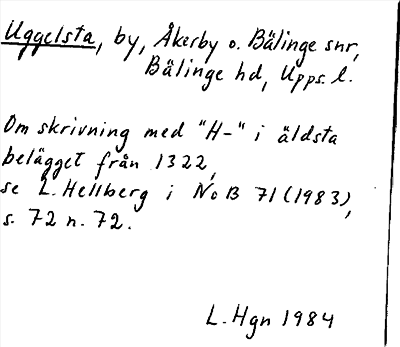 Uggelsta, by, Åkerby o. Bälinge snr,
Bälinge hd, Upps. l.
Om skrivning med "H-" i äldsta
belägget från 1322,
se L. Hellberg i NoB 71 (1983),
s. 72 n. 72.
L. Hgn 1984